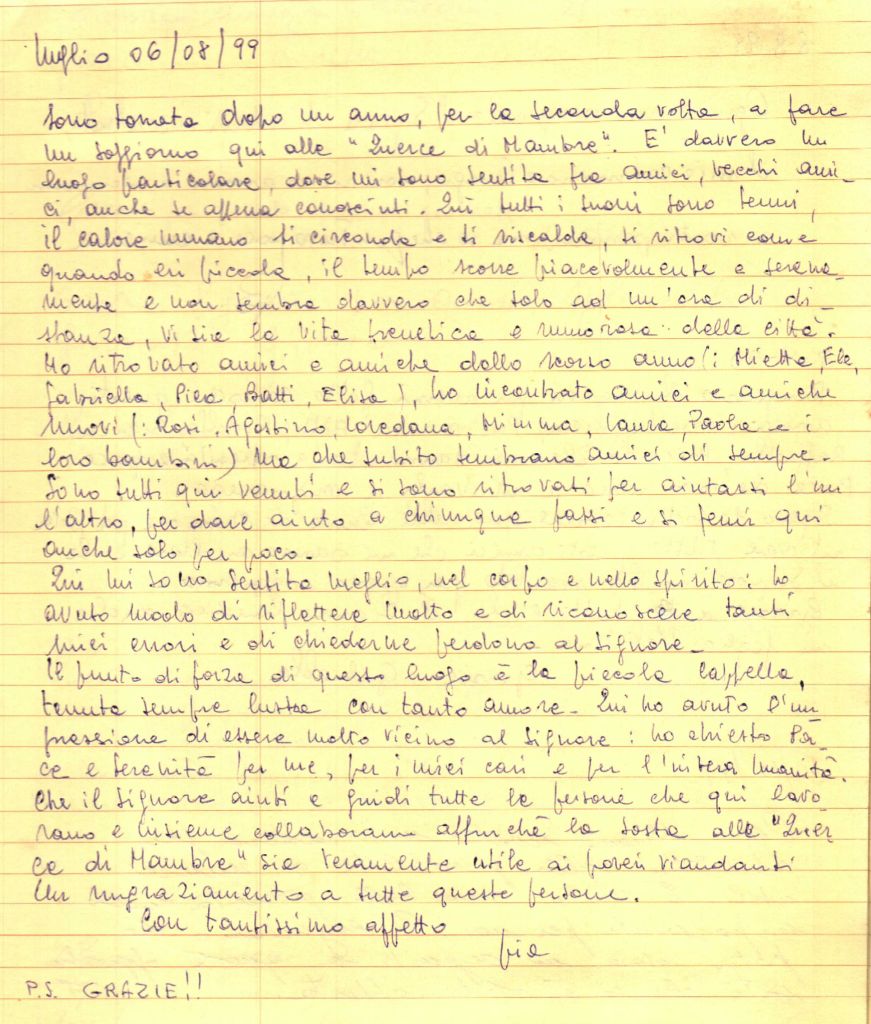 Miglio 06/08/99
Sono tornata dopo un anno, per la seconda volta, a fare
un soggiorno qui alle "Querce di Mambre". E' davvero un
luogo particolare, dove mi sono sentita fra amici, vecchi ami-
ci, anche se appena conosciuti. Qui tutti i suoni sono tenui,
il calore umano ti circonda e ti riscalda, ti ritrovi come
quando eri piccola, il tempo scorre piacevolmente e serena-
mente e non sembra davvero che solo ad un'ora di di-
stanza, vi sia la vita frenetica e rumorosa della città.
Ho ritrovato amici e amiche dallo scorso anno (: Mietta, Ele,
Gabriella, Piera, Batti, Elisa), ho incontrato amici e amiche
nuovi (: Rosi, Agostino, Loredana, Mimma, Laura, Paola e i
loro bambini) ma che subito sembrano amici di sempre.
Sono tutti qui venuti e si sono ritrovati per aiutarsi l'un
l'altro, per dare aiuto a chiunque passi e si fermi qui
anche solo per poco.
Qui mi sono sentita meglio, nel corpo e nello spirito: ho
avuto modo di riflettere molto e di riconoscere tanti
miei errori e di chiederne perdono al Signore.
Il punto di forza di questo luogo è la piccola Cappella,
tenuta sempre lustra con tanto amore. Qui ho avuto l'im
pressione di essere molto vicino al Signore: ho chiesto Pa-
ce e Serenità per me, per i miei cari e per l'intera Umanità.
Che il Signore aiuti e guidi tutte le persone che qui lavo
rano e insieme collaborano affinché la sosta alle "Quer
ce di Mambre" sia veramente utile ai poveri viandanti
Un ringraziamento a tutte queste persone.
Con tantissimo affetto
Pia
P.S. GRAZIE!!